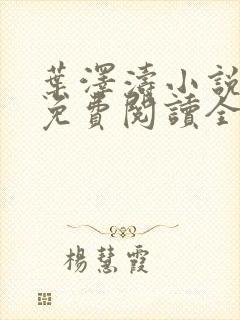 葉澤濤小說
免費閱讀全
楊慧霞